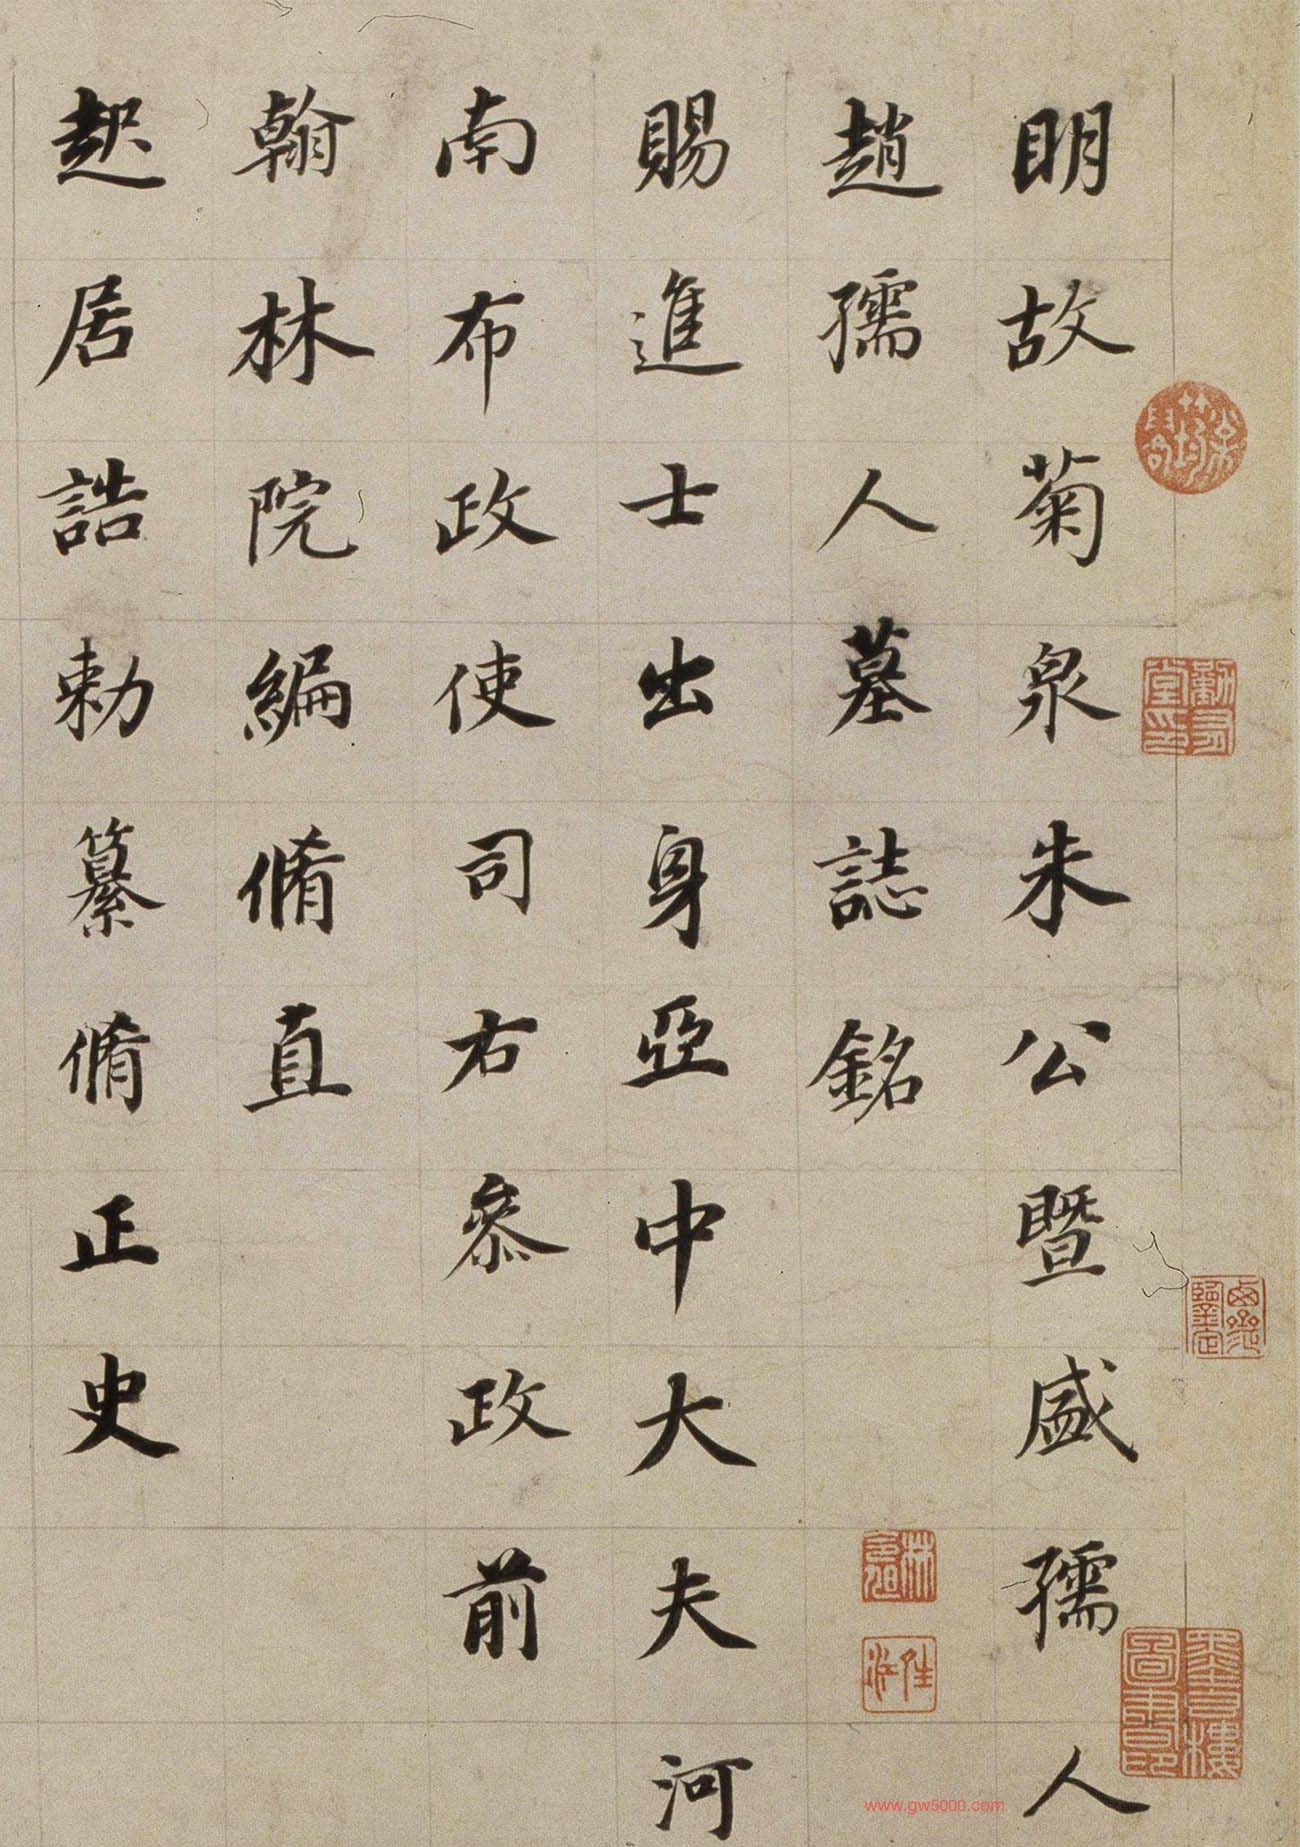 明故菊泉朱公暨盛孺人
趙孺人墓誌銘
賜進士出身亞中大夫河
南布政使司右叅政前
翰林院編脩直
起居誥勅纂脩正史
www.gw5000.com